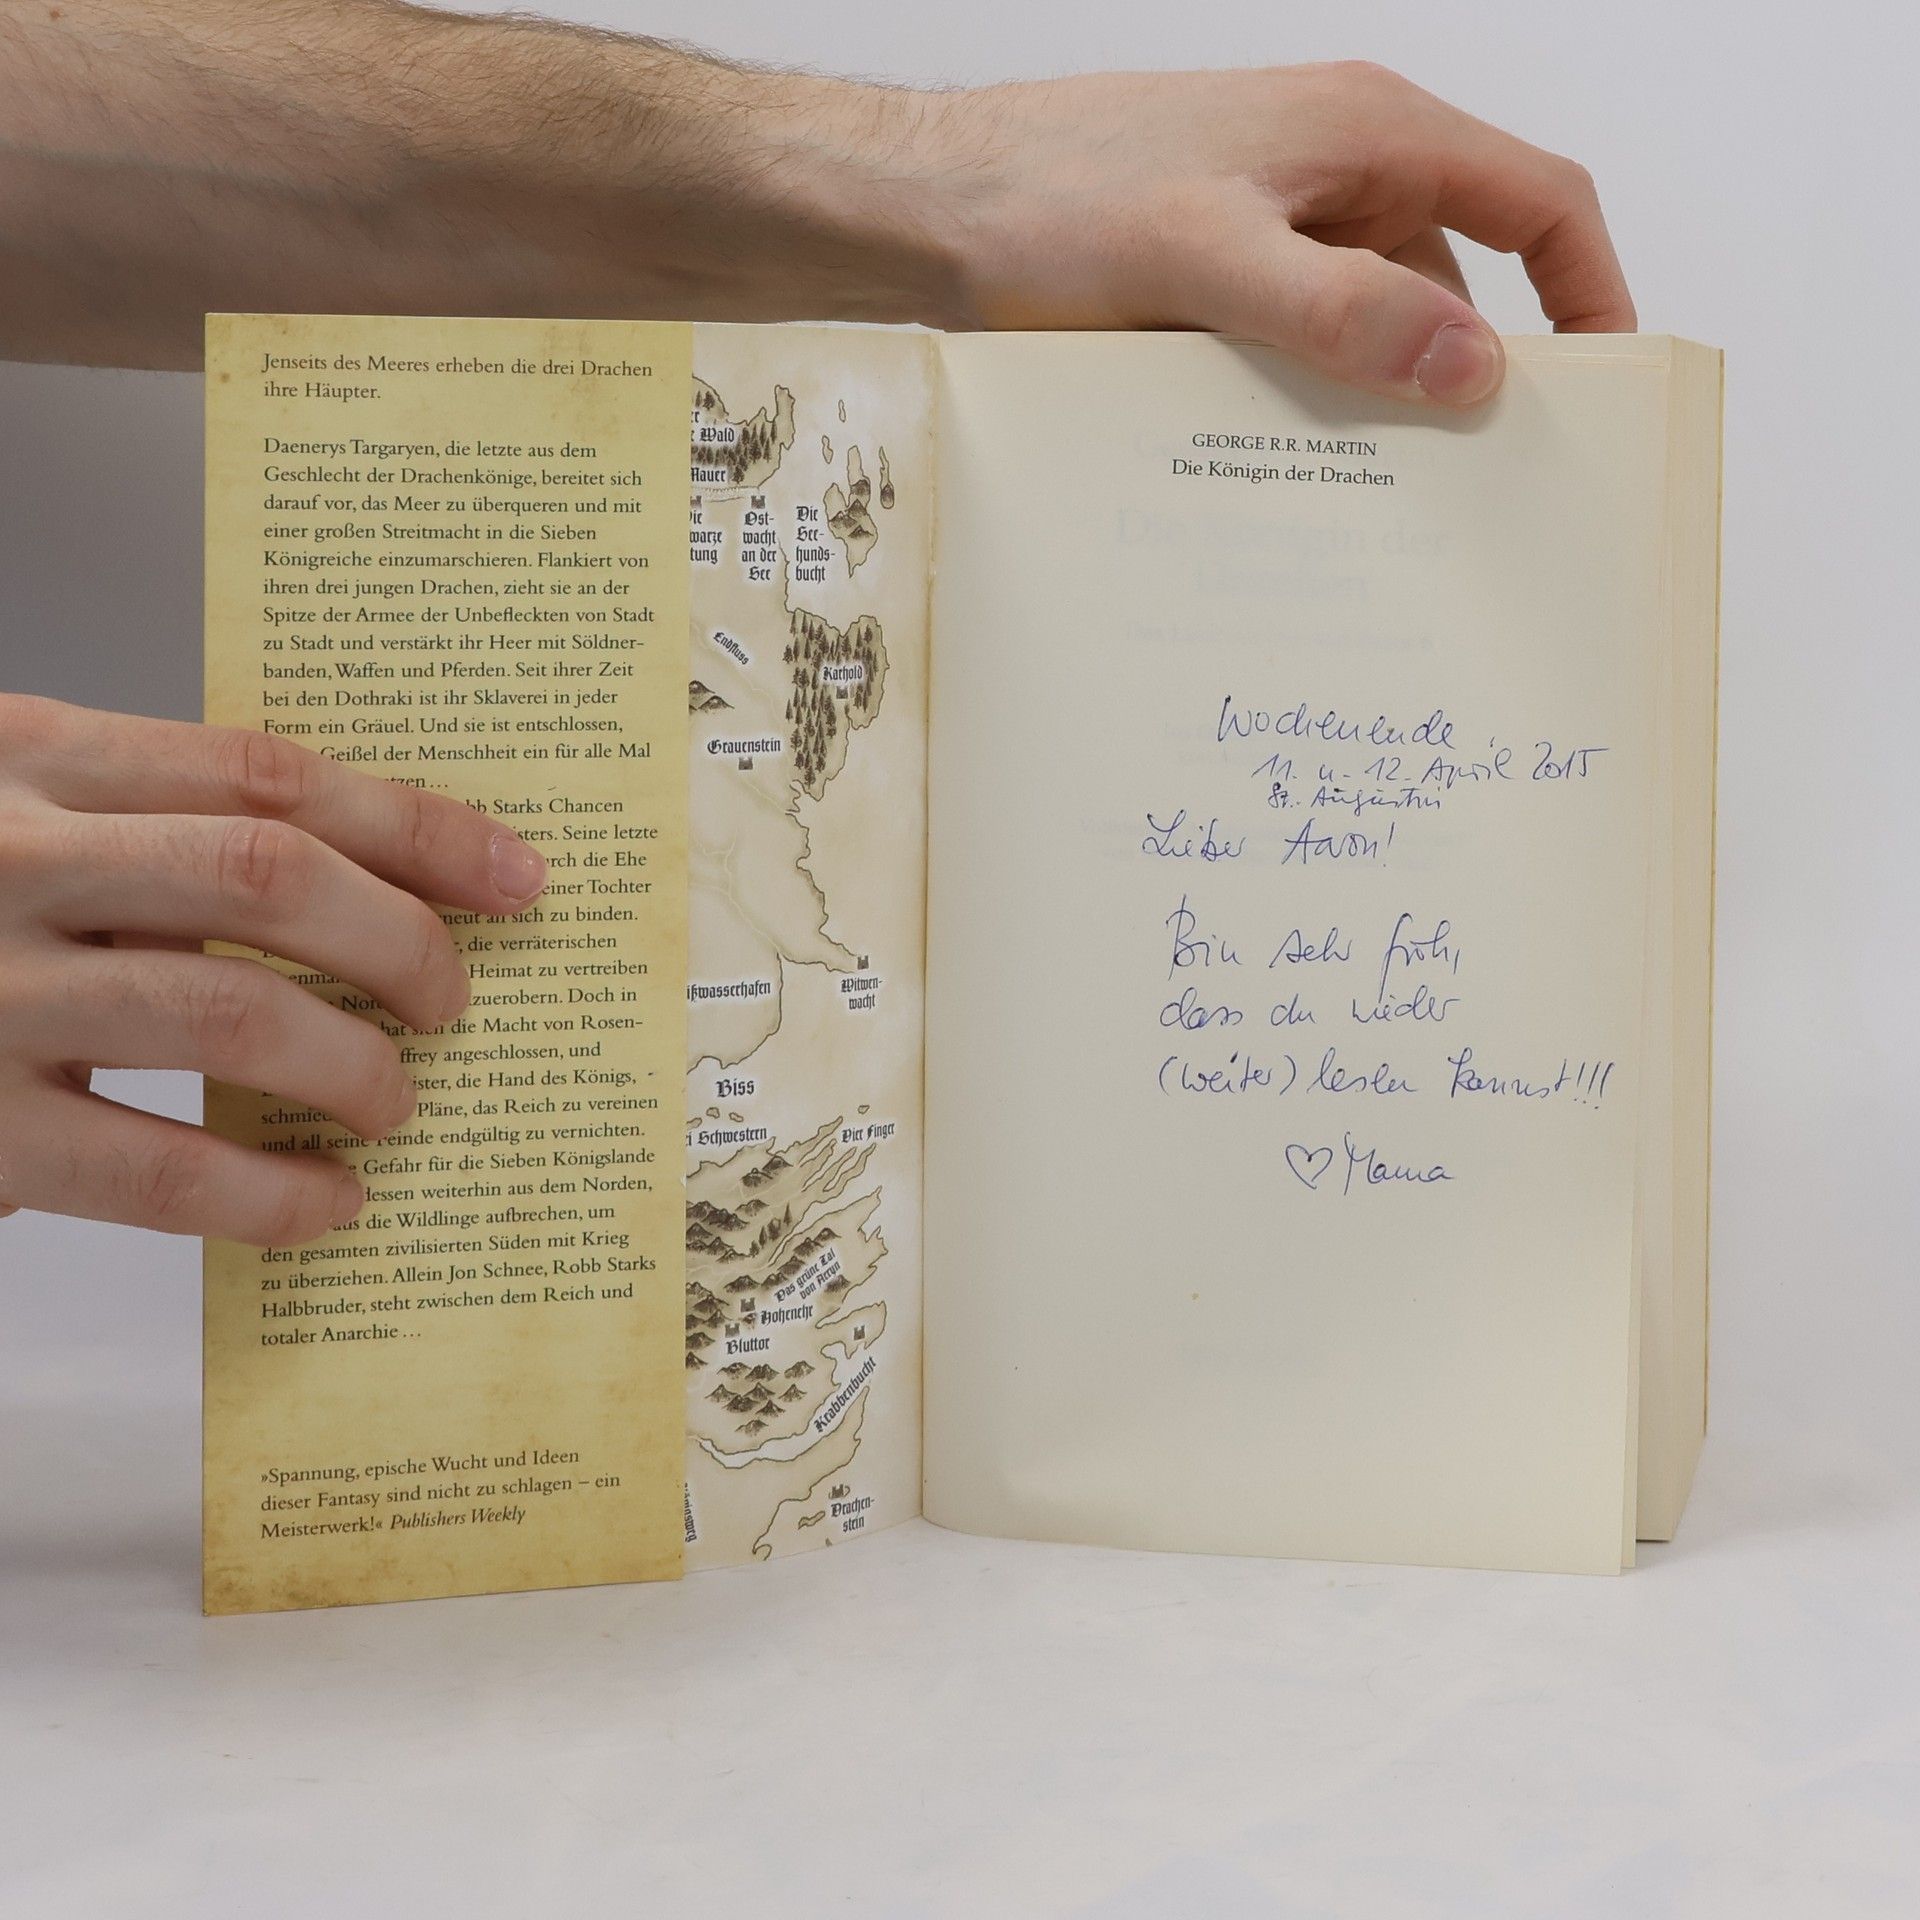 Jenseits des Meeres erheben die drei Drachen
ihre Häupter.
Daenerys Targaryen, die letzte aus dem
Geschlecht der Drachenkönige, bereitet sich
darauf vor, das Meer zu überqueren und mit
einer großen Streitmacht in die Sieben
Königreiche einzumarschieren. Flankiert von
ihren drei jungen Drachen, zieht sie an der
Spitze der Armee der Unbefleckten von Stadt
zu Stadt und verstärkt ihr Heer mit Söldner-
banden, Waffen und Pferden. Seit ihrer Zeit
bei den Dothraki ist ihr Sklaverei in jeder
Form ein Gräuel. Und sie ist entschlossen,
Geißel der Menschheit ein für alle Mal
tzen…
bb Starks Chancen
isters. Seine letzte
urch die Ehe
einer Tochter
neut an sich zu binden.
die verräterischen
Heimat zu vertreiben
Nor zuerobern. Doch in
hat sich die Macht von Rosen-
ffrey angeschlossen, und
ister, die Hand des Königs,
schmied Pläne, das Reich zu vereinen
und all seine Feinde endgültig zu vernichten.
e Gefahr für die Sieben Königslande
dessen weiterhin aus dem Norden,
aus die Wildlinge aufbrechen, um
den gesamten zivilisierten Süden mit Krieg
zu überziehen. Allein Jon Schnee, Robb Starks
Halbbruder, steht zwischen dem Reich und
totaler Anarchie…
»Spannung, epische Wucht und Ideen
dieser Fantasy sind nicht zu schlagen – ein
Meisterwerk!« Publishers Weekly
er
e Wald
Mauer
Die
warze
tung
Ost-
wacht
an der
See
Die
See-
hunds-
bucht
Endfluss
Karhold
Grauenstein
ißwasserhafen
Witwen-
wacht
Biss
ei Schwestern
Vier Finger
Das grüne Tal
von Arryn
Hohenehr
Bluttor
Krabbenbucht
Königsweg
Drachen-
stein
GEORGE R.R. MARTIN
Die Königin der Drachen
Wochenende
11. u. 12. April 2015
St. Augustin
Lieber Aaron!
Bin sehr froh,
dass du wieder
(weiter) lesen kannst!!!
♡ Mama